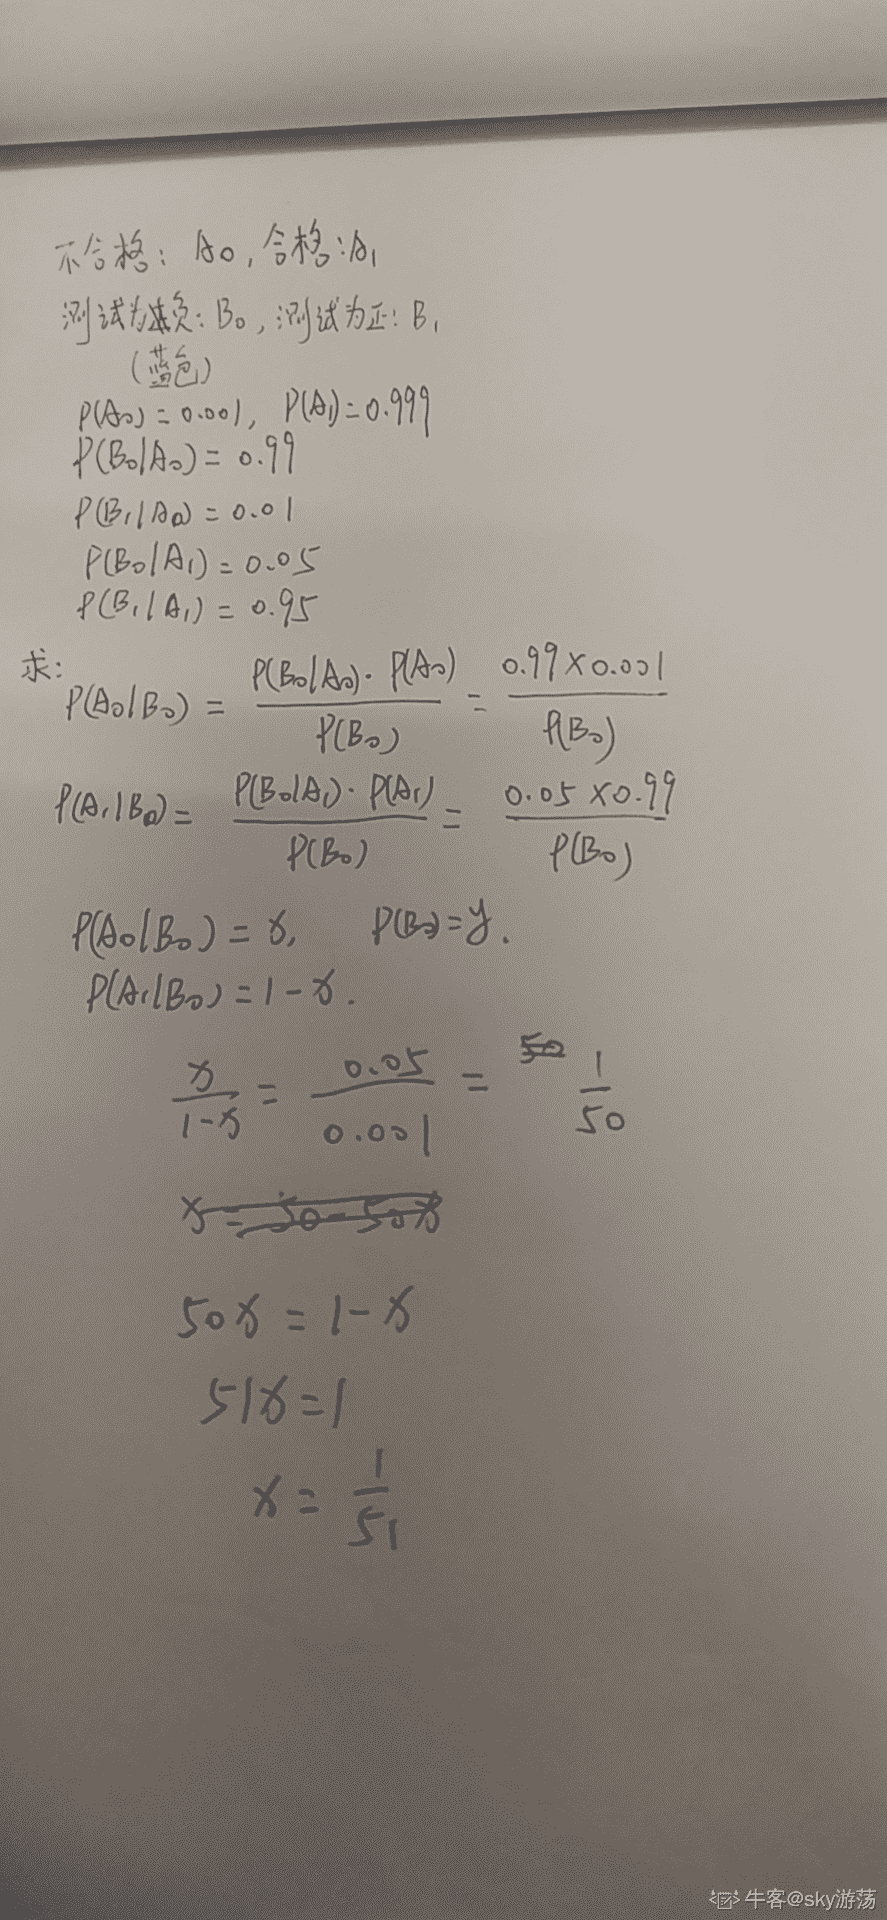 不合格: A0, 合格: A1
测试为负: B0, 测试为正: B1
(蓝色)
P(A0) = 0.001, P(A1) = 0.999
P(B0|A0) = 0.99
P(B1|A0) = 0.01
P(B0|A1) = 0.05
P(B1|A1) = 0.95
求:
P(A0|B0) = P(B0|A0)·P(A0) / P(B0) = 0.99×0.001 / P(B0)
P(A1|B0) = P(B0|A1)·P(A1) / P(B0) = 0.05×0.99 / P(B0)
P(A0|B0) = x, P(B0) = y.
P(A1|B0) = 1-x.
x / 1-x = 0.05 / 0.001 = 50 1/50
x = 50-50x
50x = 1-x
51x = 1
x = 1/51
牛客@sky游荡